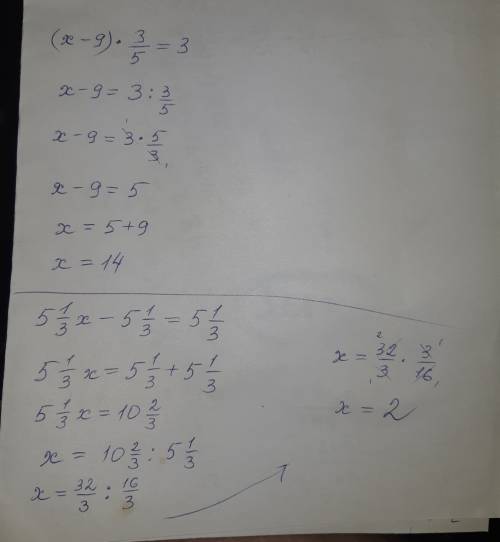 (x-9)·3/5=3
x-9=3:3/5
x-9=3·5/3
x-9=5
x=5+9
x=14
5 1/3x-5 1/3=5 1/3
5 1/3x=5 1/3+5 1/3
5 1/3x=10 2/3
x=10 2/3:5 1/3
x=32/3:16/3
x=32/3·3/16
x=2